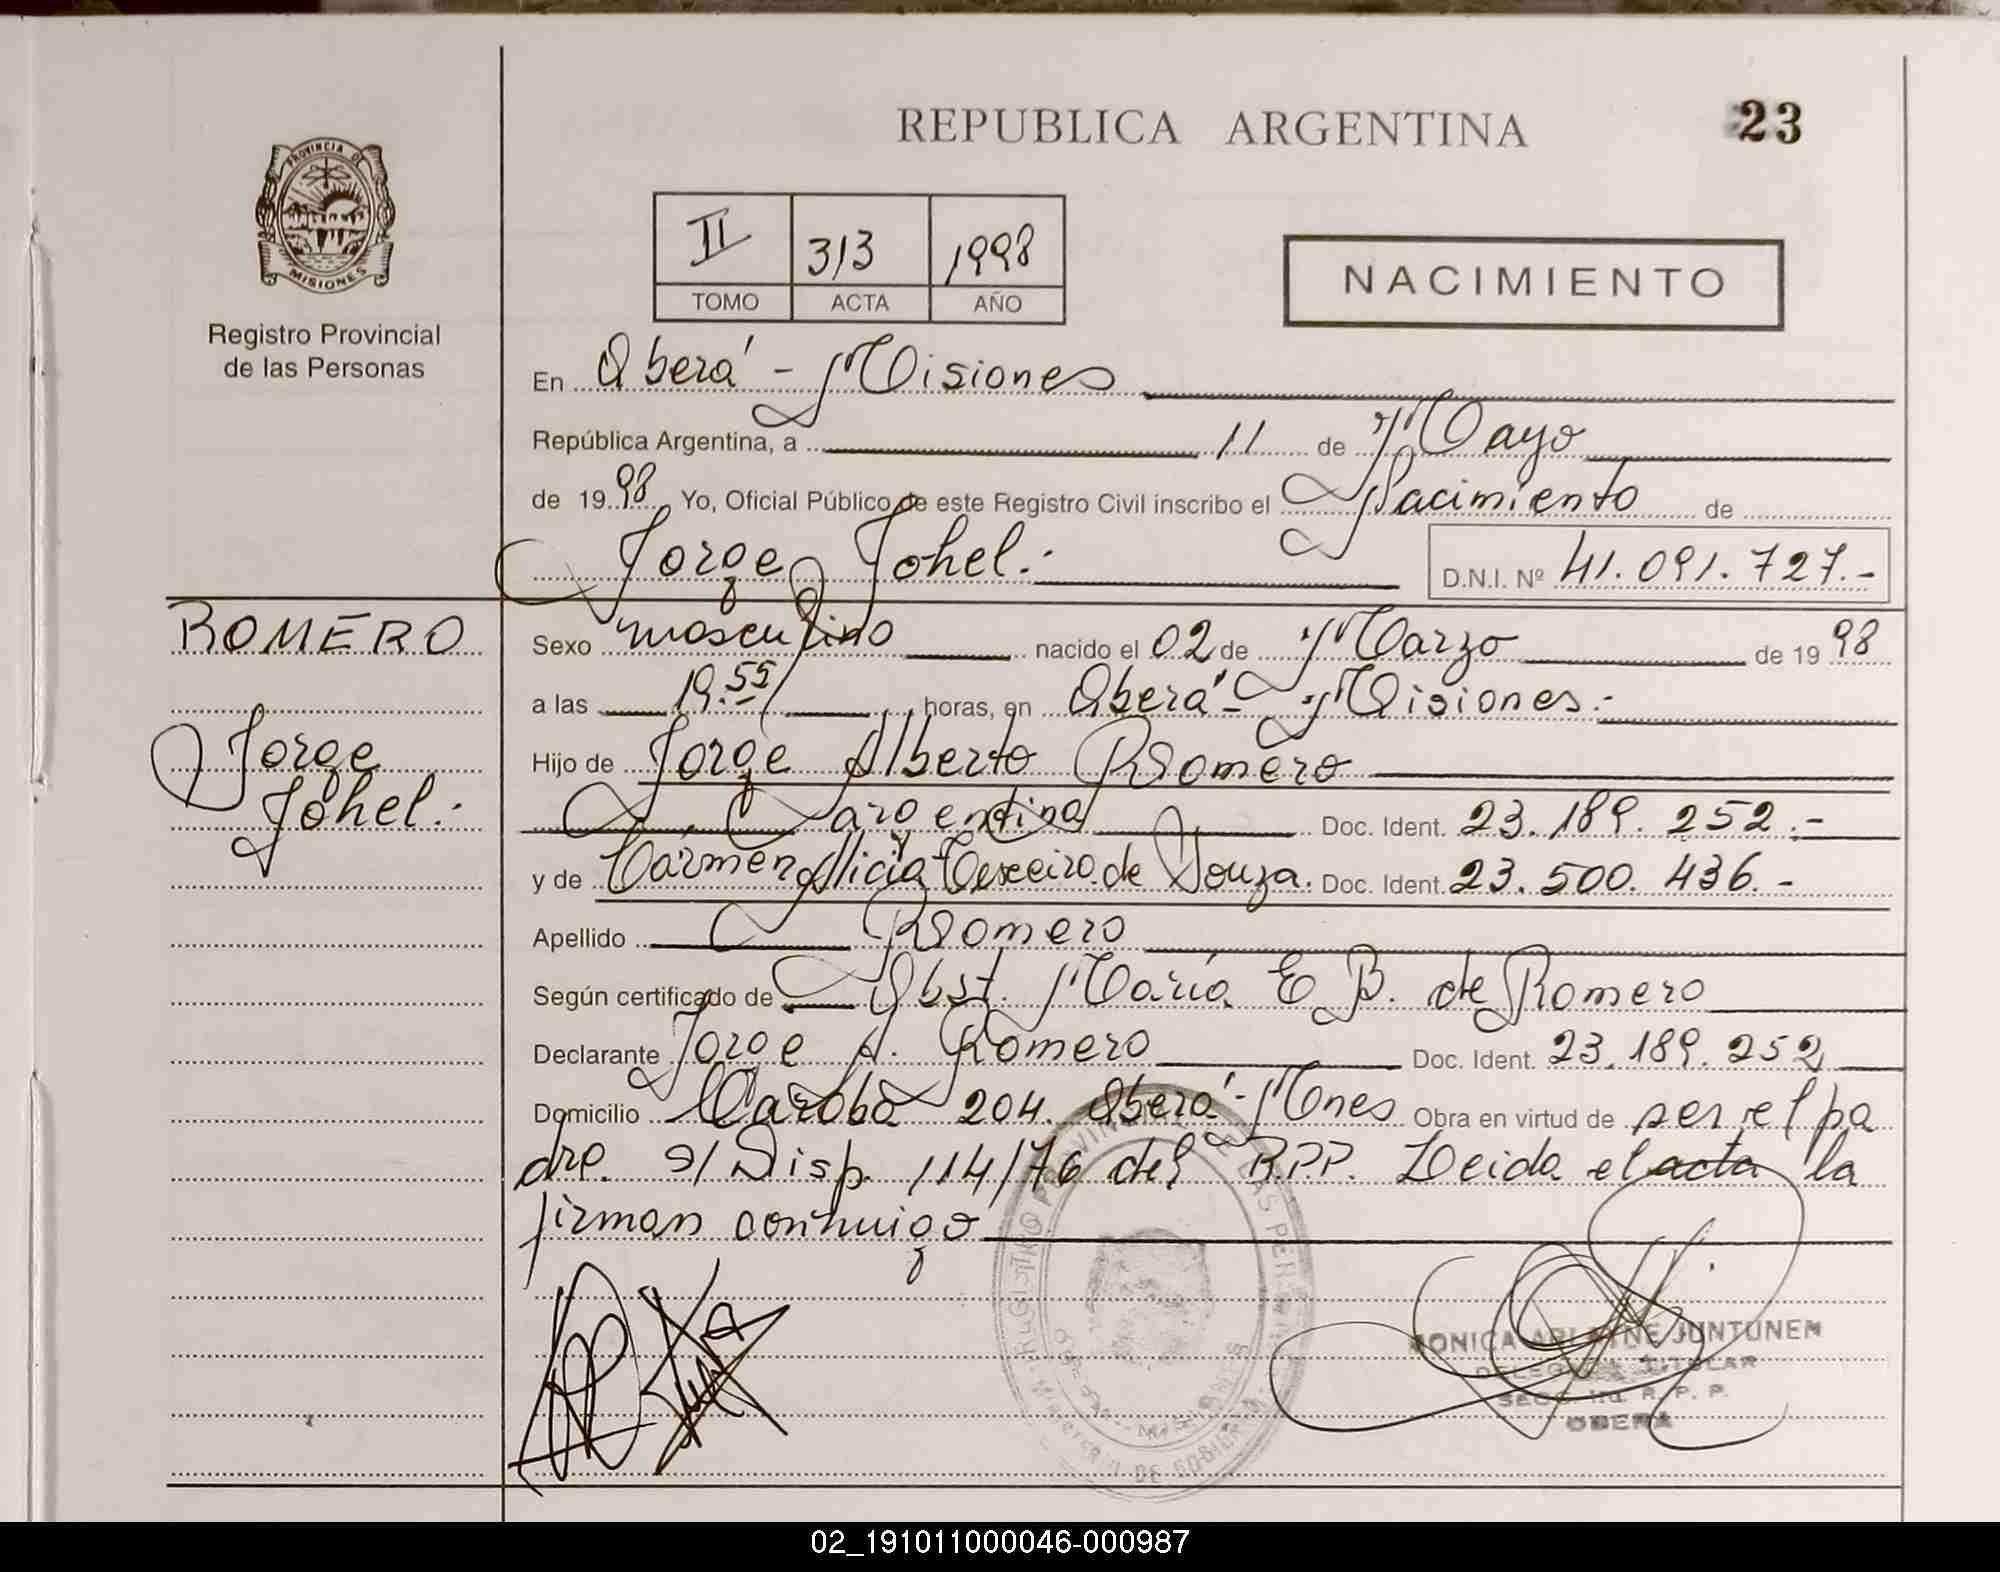 REPUBLICA ARGENTINA
23
PROVINCIA DE
MISIONES
Registro Provincial
de las Personas
II 313 1998
TOMO ACTA AÑO
NACIMIENTO
En Oberá - Misiones
República Argentina, a 11 de Mayo
de 1998 Yo, Oficial Público de este Registro Civil inscribo el Nacimiento de
Jorge Johel.- D.N.I. Nº 41.091.727.-
ROMERO
Jorge
Johel.-
Sexo masculino nacido el 02 de Marzo de 1998
a las 19.55 horas, en Oberá - Misiones.-
Hijo de Jorge Alberto Romero
argentina Doc. Ident. 23.189.252.-
y de Carmen Alicia Texeira de Souza. Doc. Ident. 23.500.436.-
Apellido Romero
Según certificado de Obst. María E B. de Romero
Declarante Jorge A. Romero Doc. Ident. 23.189.252
Domicilio Caroba 204. Oberá - Mnes Obra en virtud de ser el pa
dre. s/ Disp. 114/76 del R.P.P. Leida el acta la
firman conmigo
REGISTRO PROVINCIAL DE LAS PERSONAS
MISIONES
MINISTERIO DE GOBIERNO
MONICA JUNTUNEN
DELEGADA TITULAR
R. P. P.
OBERA
02_191011000046-000987